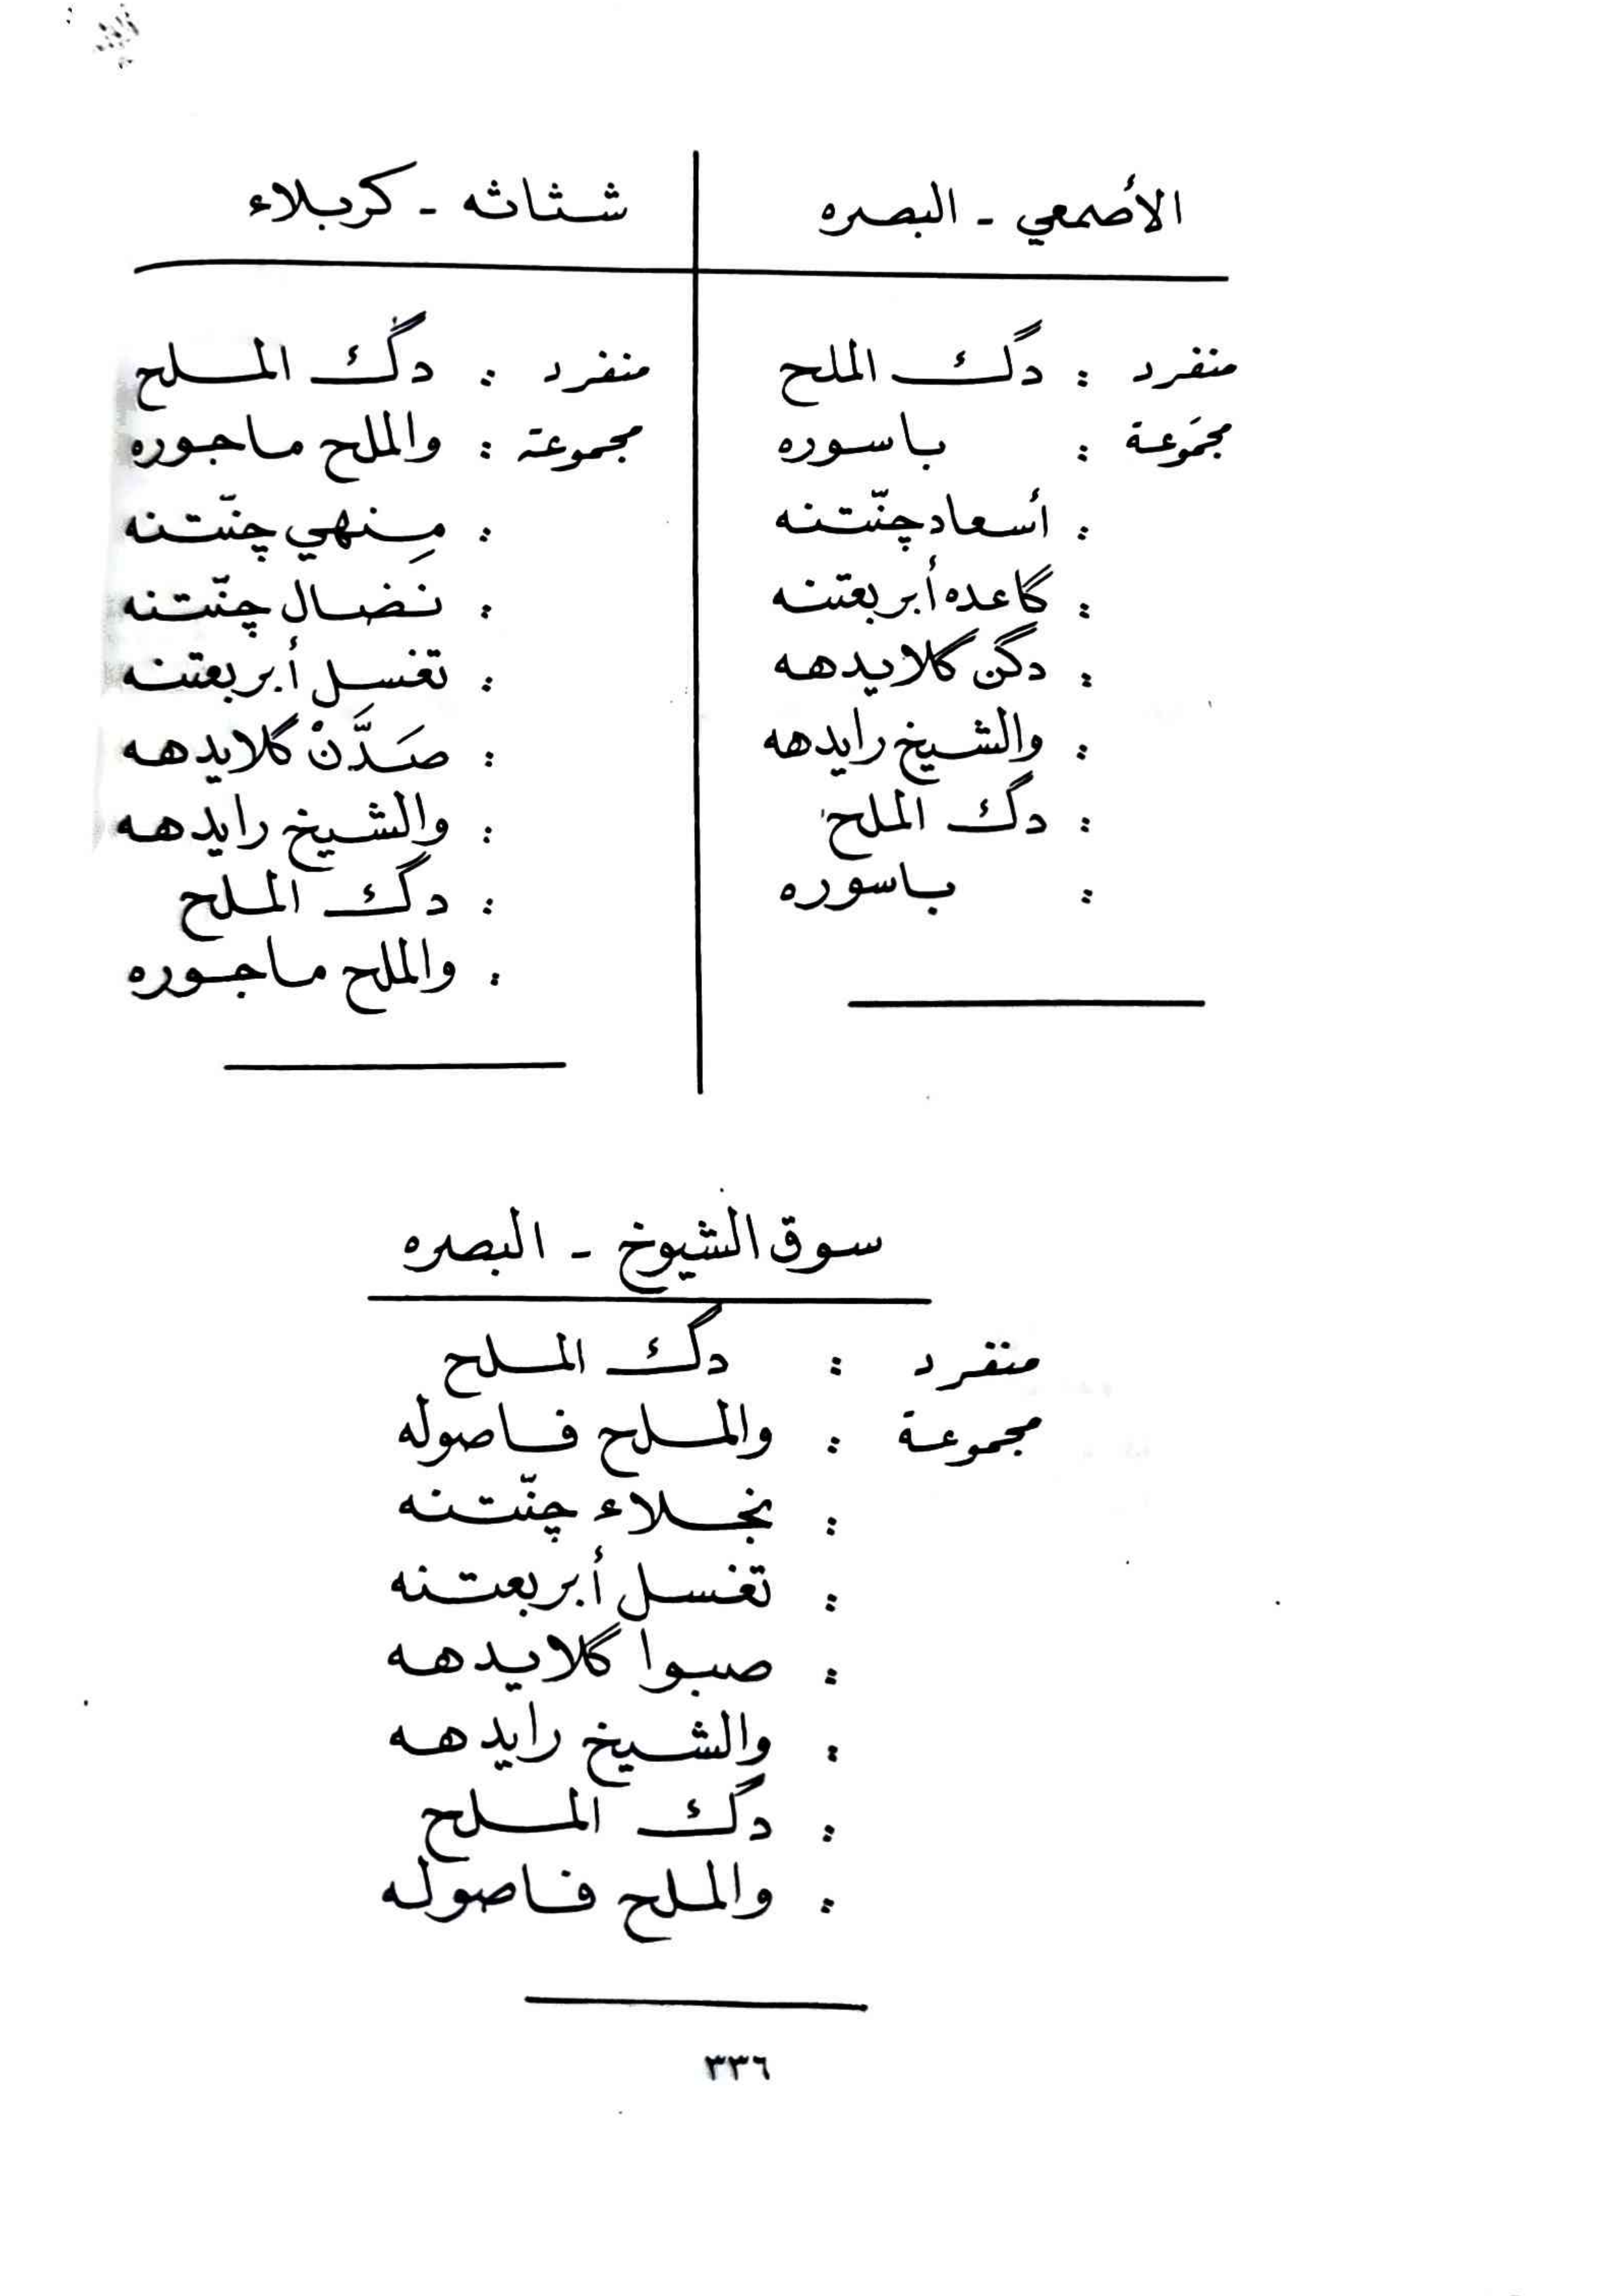 الأصمعي - البصره
منفرد : دگ الملح
مجموعة : باسوره
: أسعاد چنّتنه
: گاعده أبربعتنه
: دگن گلايدهه
: والشيخ رايدهه
: دگ الملح
: باسوره
شثاثه - كربلاء
منفرد : دگ الملح
مجموعة : والملح ماجوره
: مِنهي چنّتنه
: نَضال چنّتنه
: تغسل أبربعتنه
: صَدَّنْ گلايدهه
: والشيخ رايدهه
: دگ الملح
: والملح ماجوره
سوق الشيوخ - البصره
منفرد : دگ الملح
مجموعة : والملح فاصوله
: نجلاء چنّتنه
: تغسل أبربعتنه
: صبوا گلايدهه
: والشيخ رايدهه
: دگ الملح
: والملح فاصوله
٣٣٦